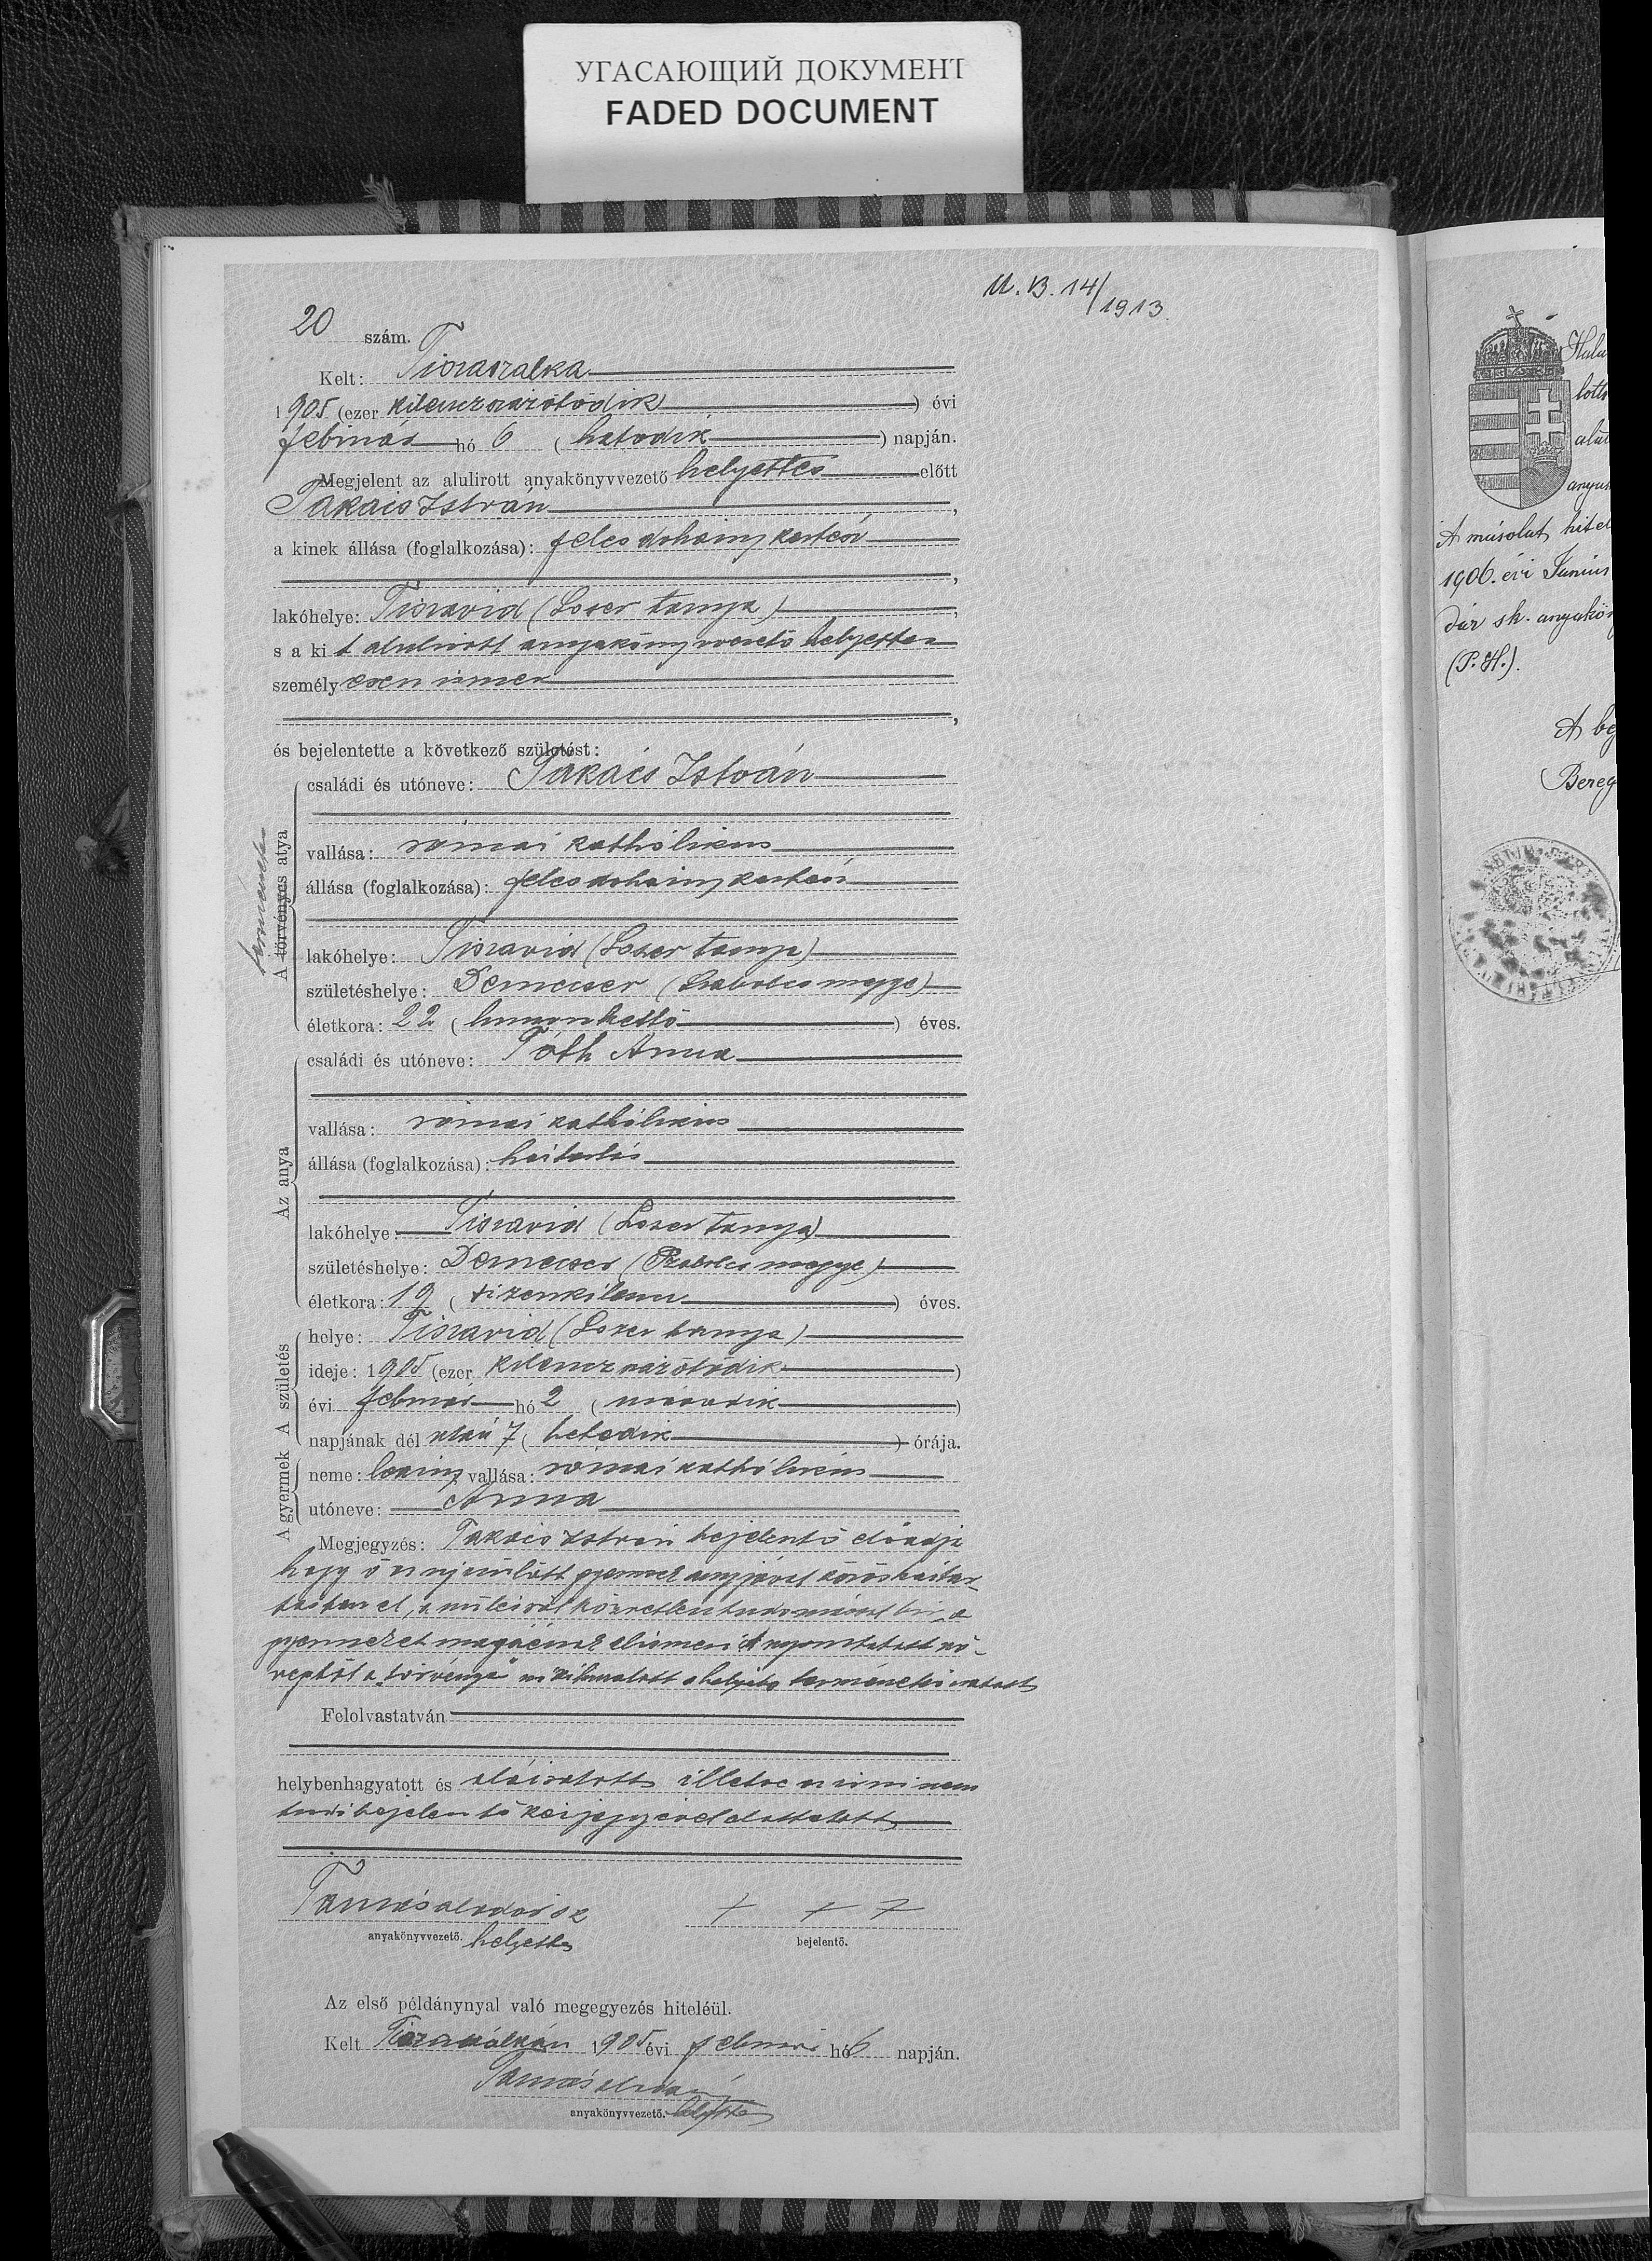 УГАСАЮЩИЙ ДОКУМЕНТ
FADED DOCUMENT
M. B. 14/1913.
20 szám.
Kelt: Tiszaszalka
1905 (ezer kilenczszázötödik) évi
február hó 6 (hatodik) napján.
Megjelent az alulirott anyakönyvvezető helyettes előtt
Takács István,
a kinek állása (foglalkozása): feles dohány kertész
,
lakóhelye: Tiszavid (Loser tanya),
s a kit alulirott anyakönyvvezető helyettes
személyesen ismer
,
és bejelentette a következő születést:
A törvényes atya
természetes
családi és utóneve: Takács István
vallása: római katholikus
állása (foglalkozása): feles dohány kertész
lakóhelye: Tiszavid (Loser tanya)
születéshelye: Demecser (Szabolcs megye)
életkora: 22 (huszonkettő) éves.
Az anya
családi és utóneve: Tóth Anna
vallása: római katholikus
állása (foglalkozása): háztartás
lakóhelye: Tiszavid (Loser tanya)
születéshelye: Demecser (Szabolcs megye)
életkora: 19 (tizenkilencz) éves.
A születés
helye: Tiszavid (Loser tanya)
ideje: 1905 (ezer kilenczszázötödik)
évi február hó 2 (második)
napjának dél után 7 (hetedik) órája.
A gyermek
neme: leány vallása: római katholikus
utóneve: Anna
Megjegyzés: Takács István bejelentő előadja
hogy ő az ujszülött gyermek anyjával közös háztar-
tásban él, a szülésről közvetlen tudomással bir, a
gyermeket magáénak elismeri. A nyomtatott szö-
vegből a "törvényes" szó kihuzatott s helyébe természetes iratott
Felolvastatván
helybenhagyatott és aláiratott illetve az irni nem
tudó bejelentő kézjegyével láttatott
Tamás Aladár sk + + +
anyakönyvvezető. helyettes bejelentő.
Az első példánynyal való megegyezés hiteléül.
Kelt Tiszaszalkán 1905 évi február hó 6 napján.
Tamás Aladár
anyakönyvvezető. helyettes
A másolat hitel
1906. évi Junius
dár sk. anyakön
(P. H.).
A be
Bereg